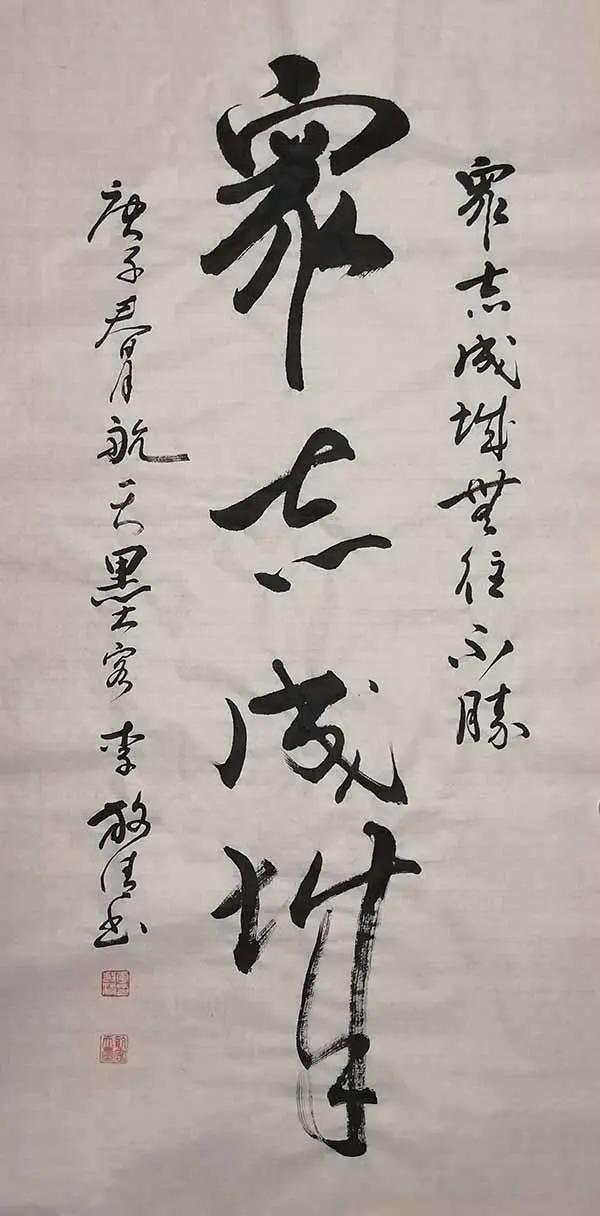 眾志成城無往不勝
眾志成城
庚子春月航天墨客李放清书